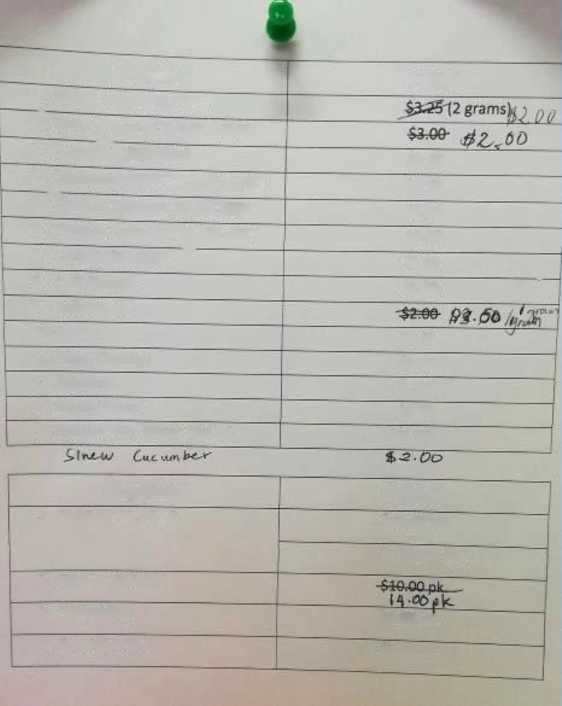 $3.25 (2 grams) $2.00
$3.00 $2.00
$2.00 .50 /gram
Sinew Cucumber $2.00
$10.00 pk
14.00 pk